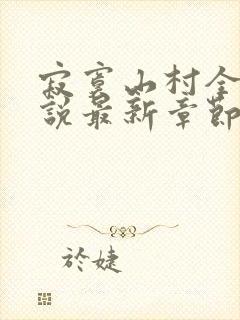 寂寞山村全
說最新章節
於婕